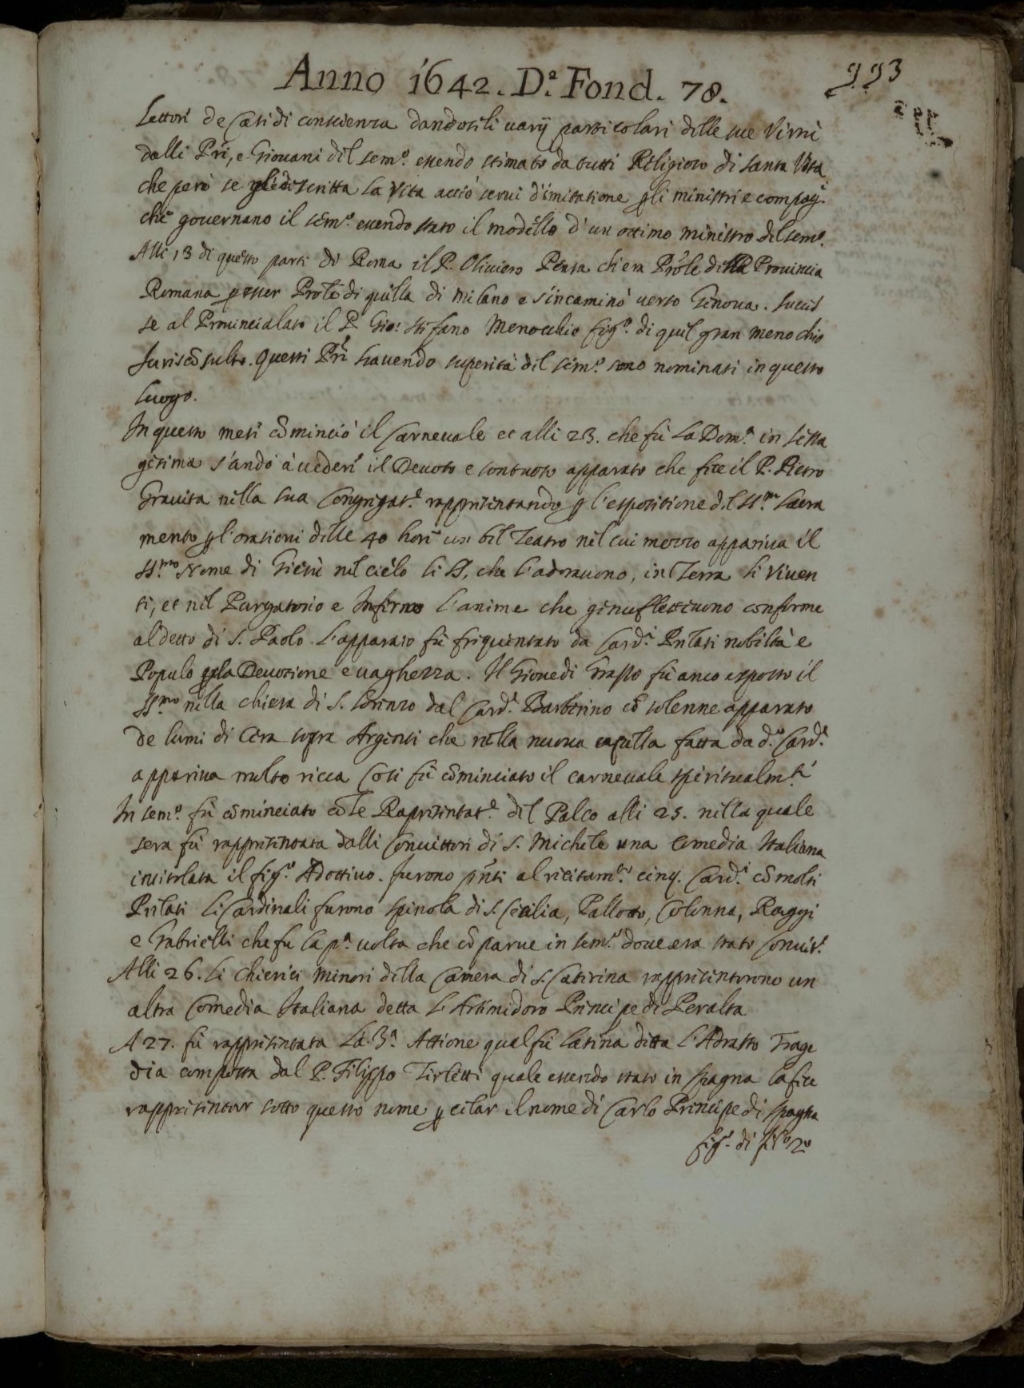 Anno 1642. D.ª Fond. 78.
993
Lettori de Casi di conscienza dandosili varij particolari delle sue Virtù
dalli Pri, e Giovani del sem.º essendo stimato da tutti Religioso di santa Vita
che però se gli è descritta la Vita acciò servi d'imitatione p li ministri e compag.
che governano il sem.º essendo stato il modello d'un ottimo ministro del sem.º
Alli 13 di questo partì di Roma il P. Oliviero Pensa ch'era Prõle della Provincia
Romana p esser Prõle di quella di Milano e s'incaminò verso Genova. Succes
se al Provincialato il P. Gio: Stefano Menochio fig.º di quel gran Menochio
Juriscõsulto. Questi Pri havendo superità del sem.º sono nominati in questo
luogo.
In questo mese cõminciò il Carnevale et alli 23. che fù la Dom.ª in setta
gesima s'andò à vedere il Devoto e sontuoso apparato che fece il P. Pietro
Gravita nella sua Congregat.e rappresentando p l'espositione del SS.mo Sacra
mento p l'orationi delle 40 hore un bel Teatro nel cui mezzo appariva il
SS.mo Nome di Giesù nel cielo li SS. che l'adoravono, in Terra li Viven
ti, et nel Purgatorio e Inferno l'anime che genuflettevono conforme
al detto di S. Paolo. L'apparato fù frequentato da Card.i Prelati nobiltà e
Populo p la Devozione e vaghezza. Il Giovedi Grasso fù anco esposto il
SS.mo nella chiesa di S. Lorenzo dal Card.e Barberino cõ solenne apparato
de lumi di Cera sopra Argenti che nella nuova capella fatta da d.º Card.e
appariva molto ricca Così fù cõminciato il carnevale spiritualm.te
In sem.º fù cõminciato cõ le Rapresentat.e del Palco alli 25. nella quale
sera fù rappresentata dalli Convittori di S. Michele una Comedia Italiana
intitolata il fig.º Adottivo. furono p̃nti al recitam.to cinq. Card.i cõ molti
Prelati li Cardinali furono Spinola di S. Cecilia, Pallotto, Colonna, Raggi
e Gabrielli che fu la p.ª volta che cõparve in sem.º dove era stato Convit.e
Alli 26. li chierici Minori della Camera di S. Caterina rappresentorono un
altra Comedia Italiana detta L'Artimidoro Principe di Peralta
A 27. fù rappresentata la 3.ª Attione qual fù latina detta l'Adrasto Trage
dia composta dal P. Filippo Tirletti quale essendo stato in Spagna la fece
rappresentar sotto questo nome p celar il nome di Carlo Principe di Spagna
fig.º di fil.º 2º